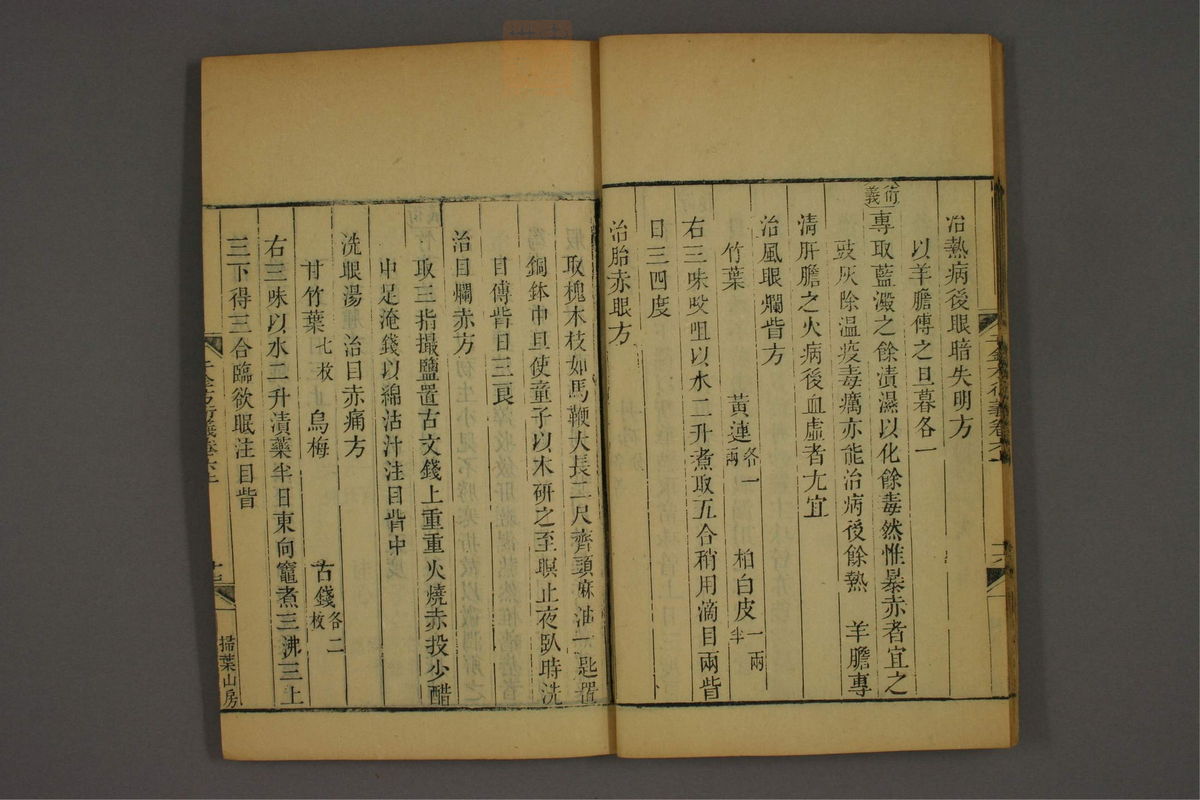 治熱病後眼暗失明方
以羊膽傅之旦暮各一
衍義專取藍澱之餘漬濕以化餘毒然惟暴赤者宜之
豉灰除温疫毒癘亦能治病後餘熱 羊膽專
清肝膽之火病後血虛者尤宜
治風眼爛眥方
竹葉 黃連各一兩 柏白皮一兩半
右三味㕮咀以水二升煮取五合稍用滴目兩眥
日三四度
治胎赤眼方
取槐木枝如馬鞭大長二尺齊頭麻油一匙置
銅鉢中旦使童子以木研之至暝止夜臥時洗
目傅眥日三良
治目爛赤方
取三指撮鹽置古文錢上重重火燒赤投少醋
中足淹錢以綿沾汁注目眥中
洗眼湯 治目赤痛方
甘竹葉七枚 烏梅 古錢各二枚
右三味以水二升漬藥半日東向竈煮三沸三上
三下得三合臨欲眠注目眥
千金方衍義卷六上
掃葉山房